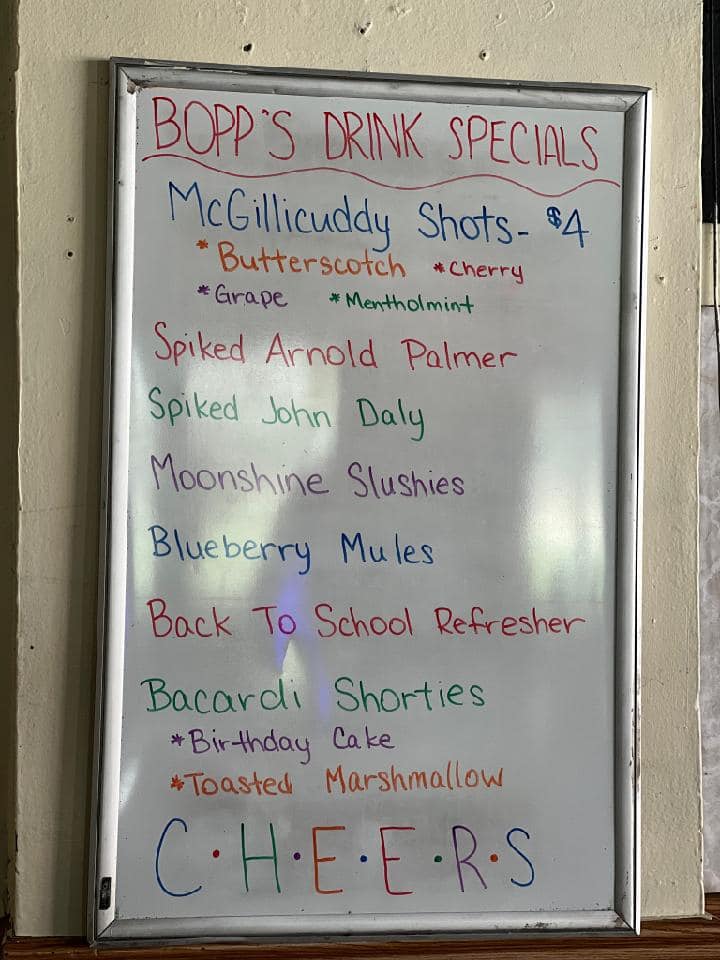 BOPP'S DRINK SPECIALS
McGillicuddy Shots- $4
*Butterscotch *Cherry
*Grape *Mentholmint
Spiked Arnold Palmer
Spiked John Daly
Moonshine Slushies
Blueberry Mules
Back To School Refresher
Bacardi Shorties
*Birthday Cake
*Toasted Marshmallow
C·H·E·E·R·S